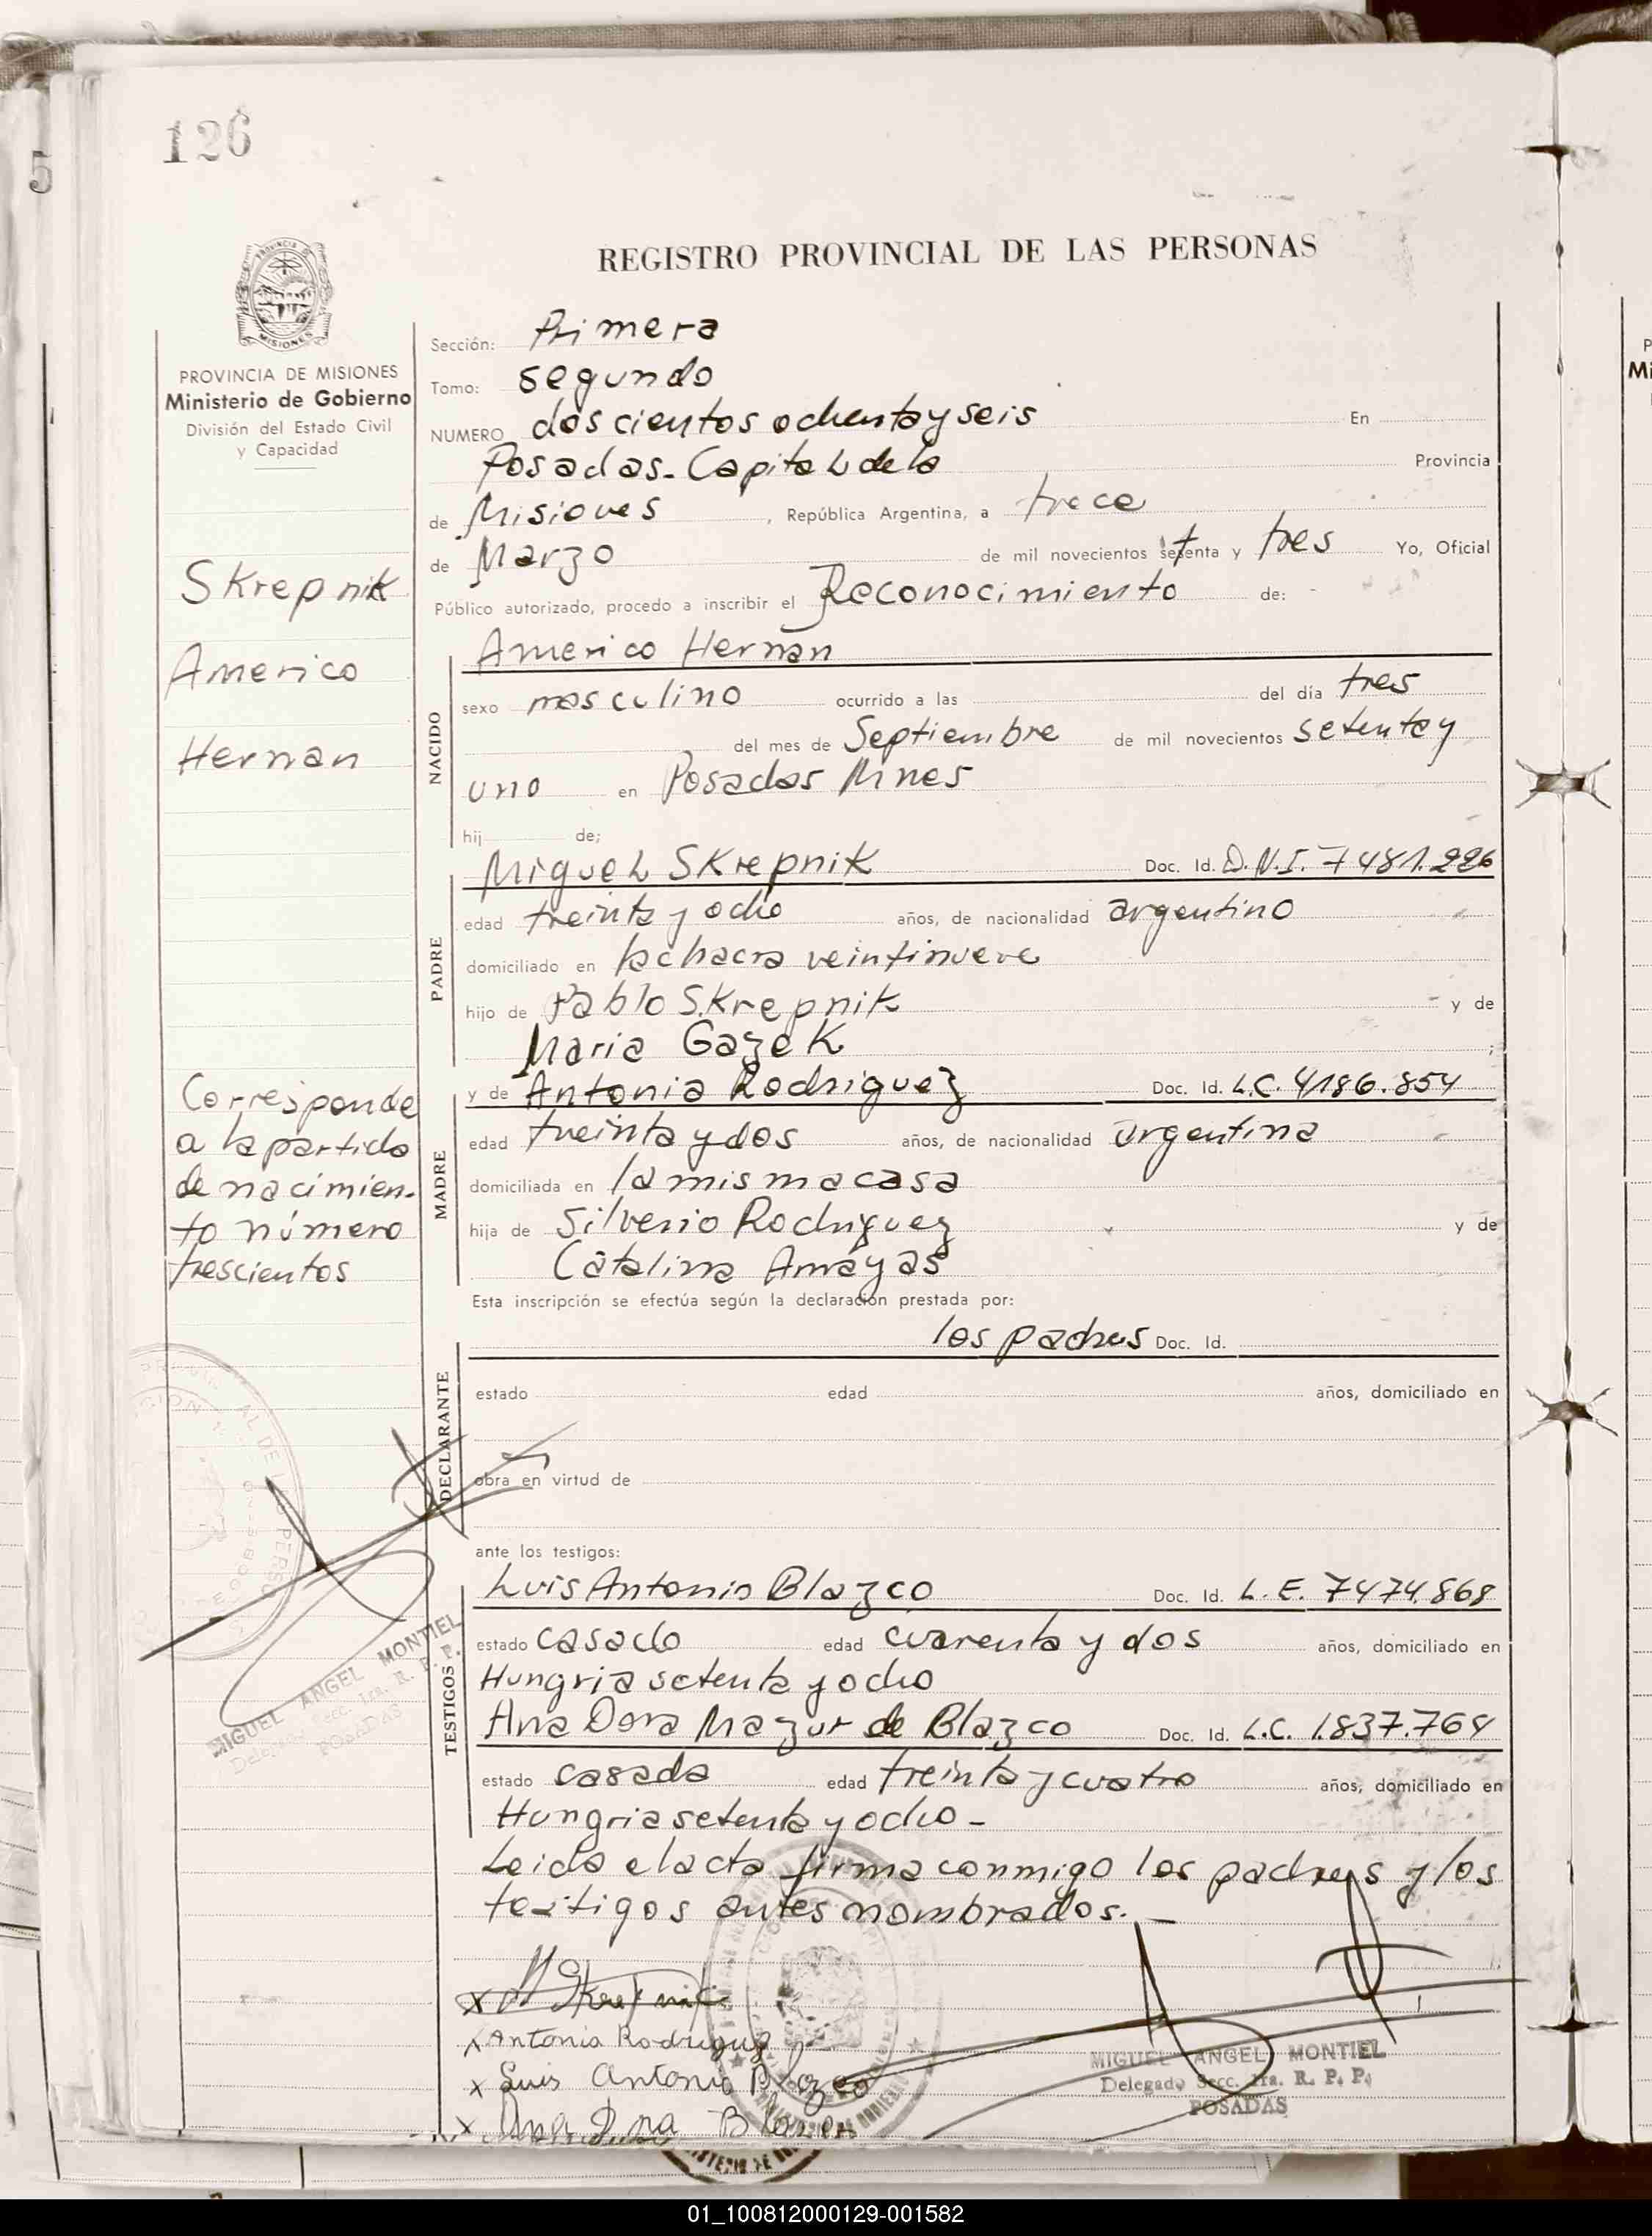 126
5
REGISTRO PROVINCIAL DE LAS PERSONAS
PROVINCIA DE MISIONES
Ministerio de Gobierno
División del Estado Civil
y Capacidad
Skrepnik
Americo
Hernan
Corresponde
a la partida
de nacimien-
to número
trescientos
MIGUEL ANGEL MONTIEL
Delegado Secc. 1ra. R. P. P.
POSADAS
Sección: Primera
Tomo: segundo
NUMERO doscientos ochenta y seis En
Posadas - Capital de la Provincia
de Misiones , República Argentina, a trece
de Marzo de mil novecientos setenta y tres Yo, Oficial
Público autorizado, procedo a inscribir el Reconocimiento de:
NACIDO
Americo Hernan
sexo masculino ocurrido a las del día tres
del mes de Septiembre de mil novecientos setenta y
uno en Posadas Mnes
hij de;
PADRE
Miguel Skrepnik Doc. Id. D.N.I. 7481.226
edad treinta y ocho años, de nacionalidad argentino
domiciliado en la chacra veintinueve
hijo de Pablo Skrepnik y de
Maria Gazek ;
MADRE
y de Antonia Rodriguez Doc. Id. L.C. 4186.854
edad treinta y dos años, de nacionalidad argentina
domiciliada en la misma casa
hija de Silverio Rodriguez y de
Catalina Amayas
Esta inscripción se efectúa según la declaración prestada por:
DECLARANTE
los padres Doc. Id.
estado edad años, domiciliado en
obra en virtud de
ante los testigos:
TESTIGOS
Luis Antonio Blazco Doc. Id. L.E. 7474.868
estado casado edad cuarenta y dos años, domiciliado en
Hungria setenta y ocho
Ana Dora Mazur de Blazco Doc. Id. L.C. 1.837.764
estado casada edad treinta y cuatro años, domiciliado en
Hungria setenta y ocho -
Leida el acta firma conmigo los padres y los
testigos antes nombrados. -
x M Skrepnik
x Antonia Rodriguez
x Luis Antonio Blazco
x Ana Dora Blazco
MIGUEL ANGEL MONTIEL
Delegado Secc. 1ra. R. P. P.
POSADAS
01_100812000129-001582